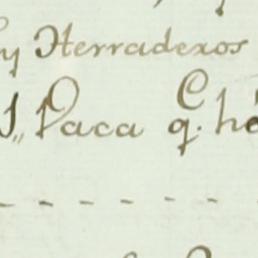 y Herraderos
Paca q. hé